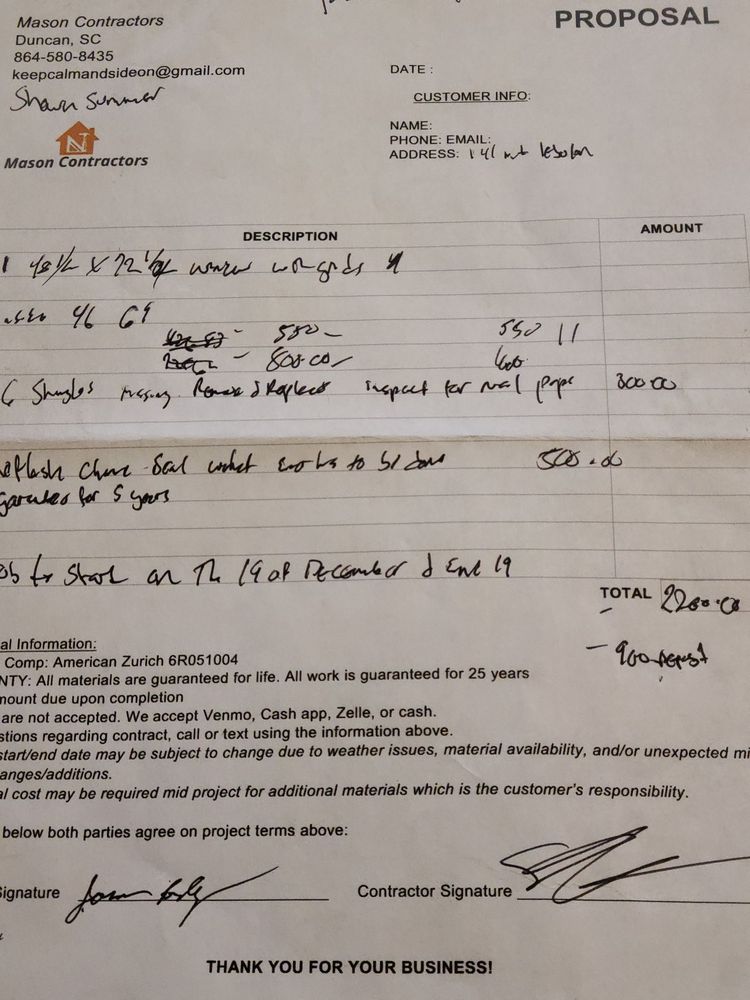 PROPOSAL
Mason Contractors
Duncan, SC
864-580-8435
keepcalmandsideon@gmail.com
Shawn Summer
DATE :
CUSTOMER INFO:
NAME:
PHONE: EMAIL:
ADDRESS: 141 mt
N
Mason Contractors
DESCRIPTION AMOUNT
1 48 1/2 X 72 1/2 window grids
46 69
550 - 550 11
800.00 - 600
6 Shingles missing. Remove & Replace inspect for nail pops 300.00
Seal what to be done 500.00
for 5 years
to Start on The 19 of December & End 19
TOTAL 2200.00
- 900 deposit
al Information:
Comp: American Zurich 6R051004
NTY: All materials are guaranteed for life. All work is guaranteed for 25 years
mount due upon completion
are not accepted. We accept Venmo, Cash app, Zelle, or cash.
stions regarding contract, call or text using the information above.
start/end date may be subject to change due to weather issues, material availability, and/or unexpected mi
anges/additions.
al cost may be required mid project for additional materials which is the customer's responsibility.
below both parties agree on project terms above:
Signature Contractor Signature
THANK YOU FOR YOUR BUSINESS!